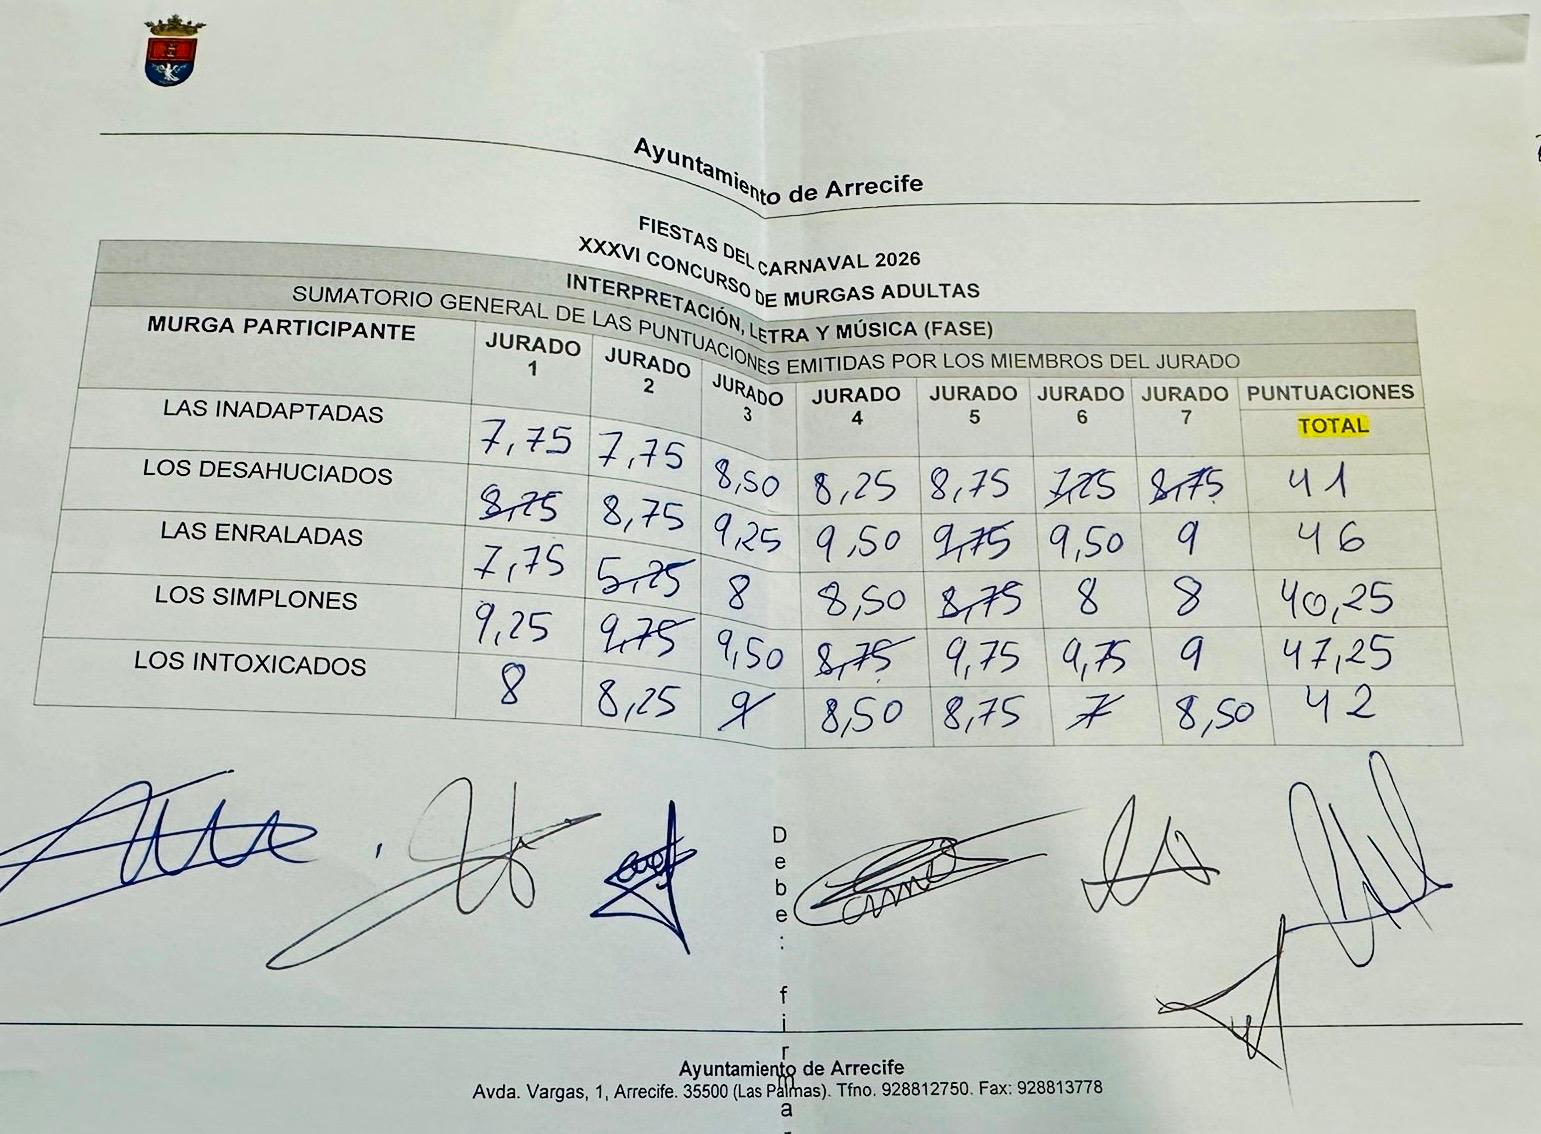 Ayuntamiento de Arrecife
FIESTAS DEL CARNAVAL 2026
XXXVI CONCURSO DE MURGAS ADULTAS
INTERPRETACIÓN, LETRA Y MÚSICA (FASE)
SUMATORIO GENERAL DE LAS PUNTUACIONES EMITIDAS POR LOS MIEMBROS DEL JURADO
MURGA PARTICIPANTE JURADO 1 JURADO 2 JURADO 3 JURADO 4 JURADO 5 JURADO 6 JURADO 7 PUNTUACIONES TOTAL
LAS INADAPTADAS 7,75 7,75 8,50 8,25 8,75 7,25 8,75 41
LOS DESAHUCIADOS 8,75 8,75 9,25 9,50 9,75 9,50 9 46
LAS ENRALADAS 7,75 5,25 8 8,50 8,75 8 8 40,25
LOS SIMPLONES 9,25 9,75 9,50 8,75 9,75 9,75 9 47,25
LOS INTOXICADOS 8 8,25 9 8,50 8,75 7 8,50 42
Debe: firmar
Ayuntamiento de Arrecife
Avda. Vargas, 1, Arrecife. 35500 (Las Palmas). Tfno. 928812750. Fax: 928813778